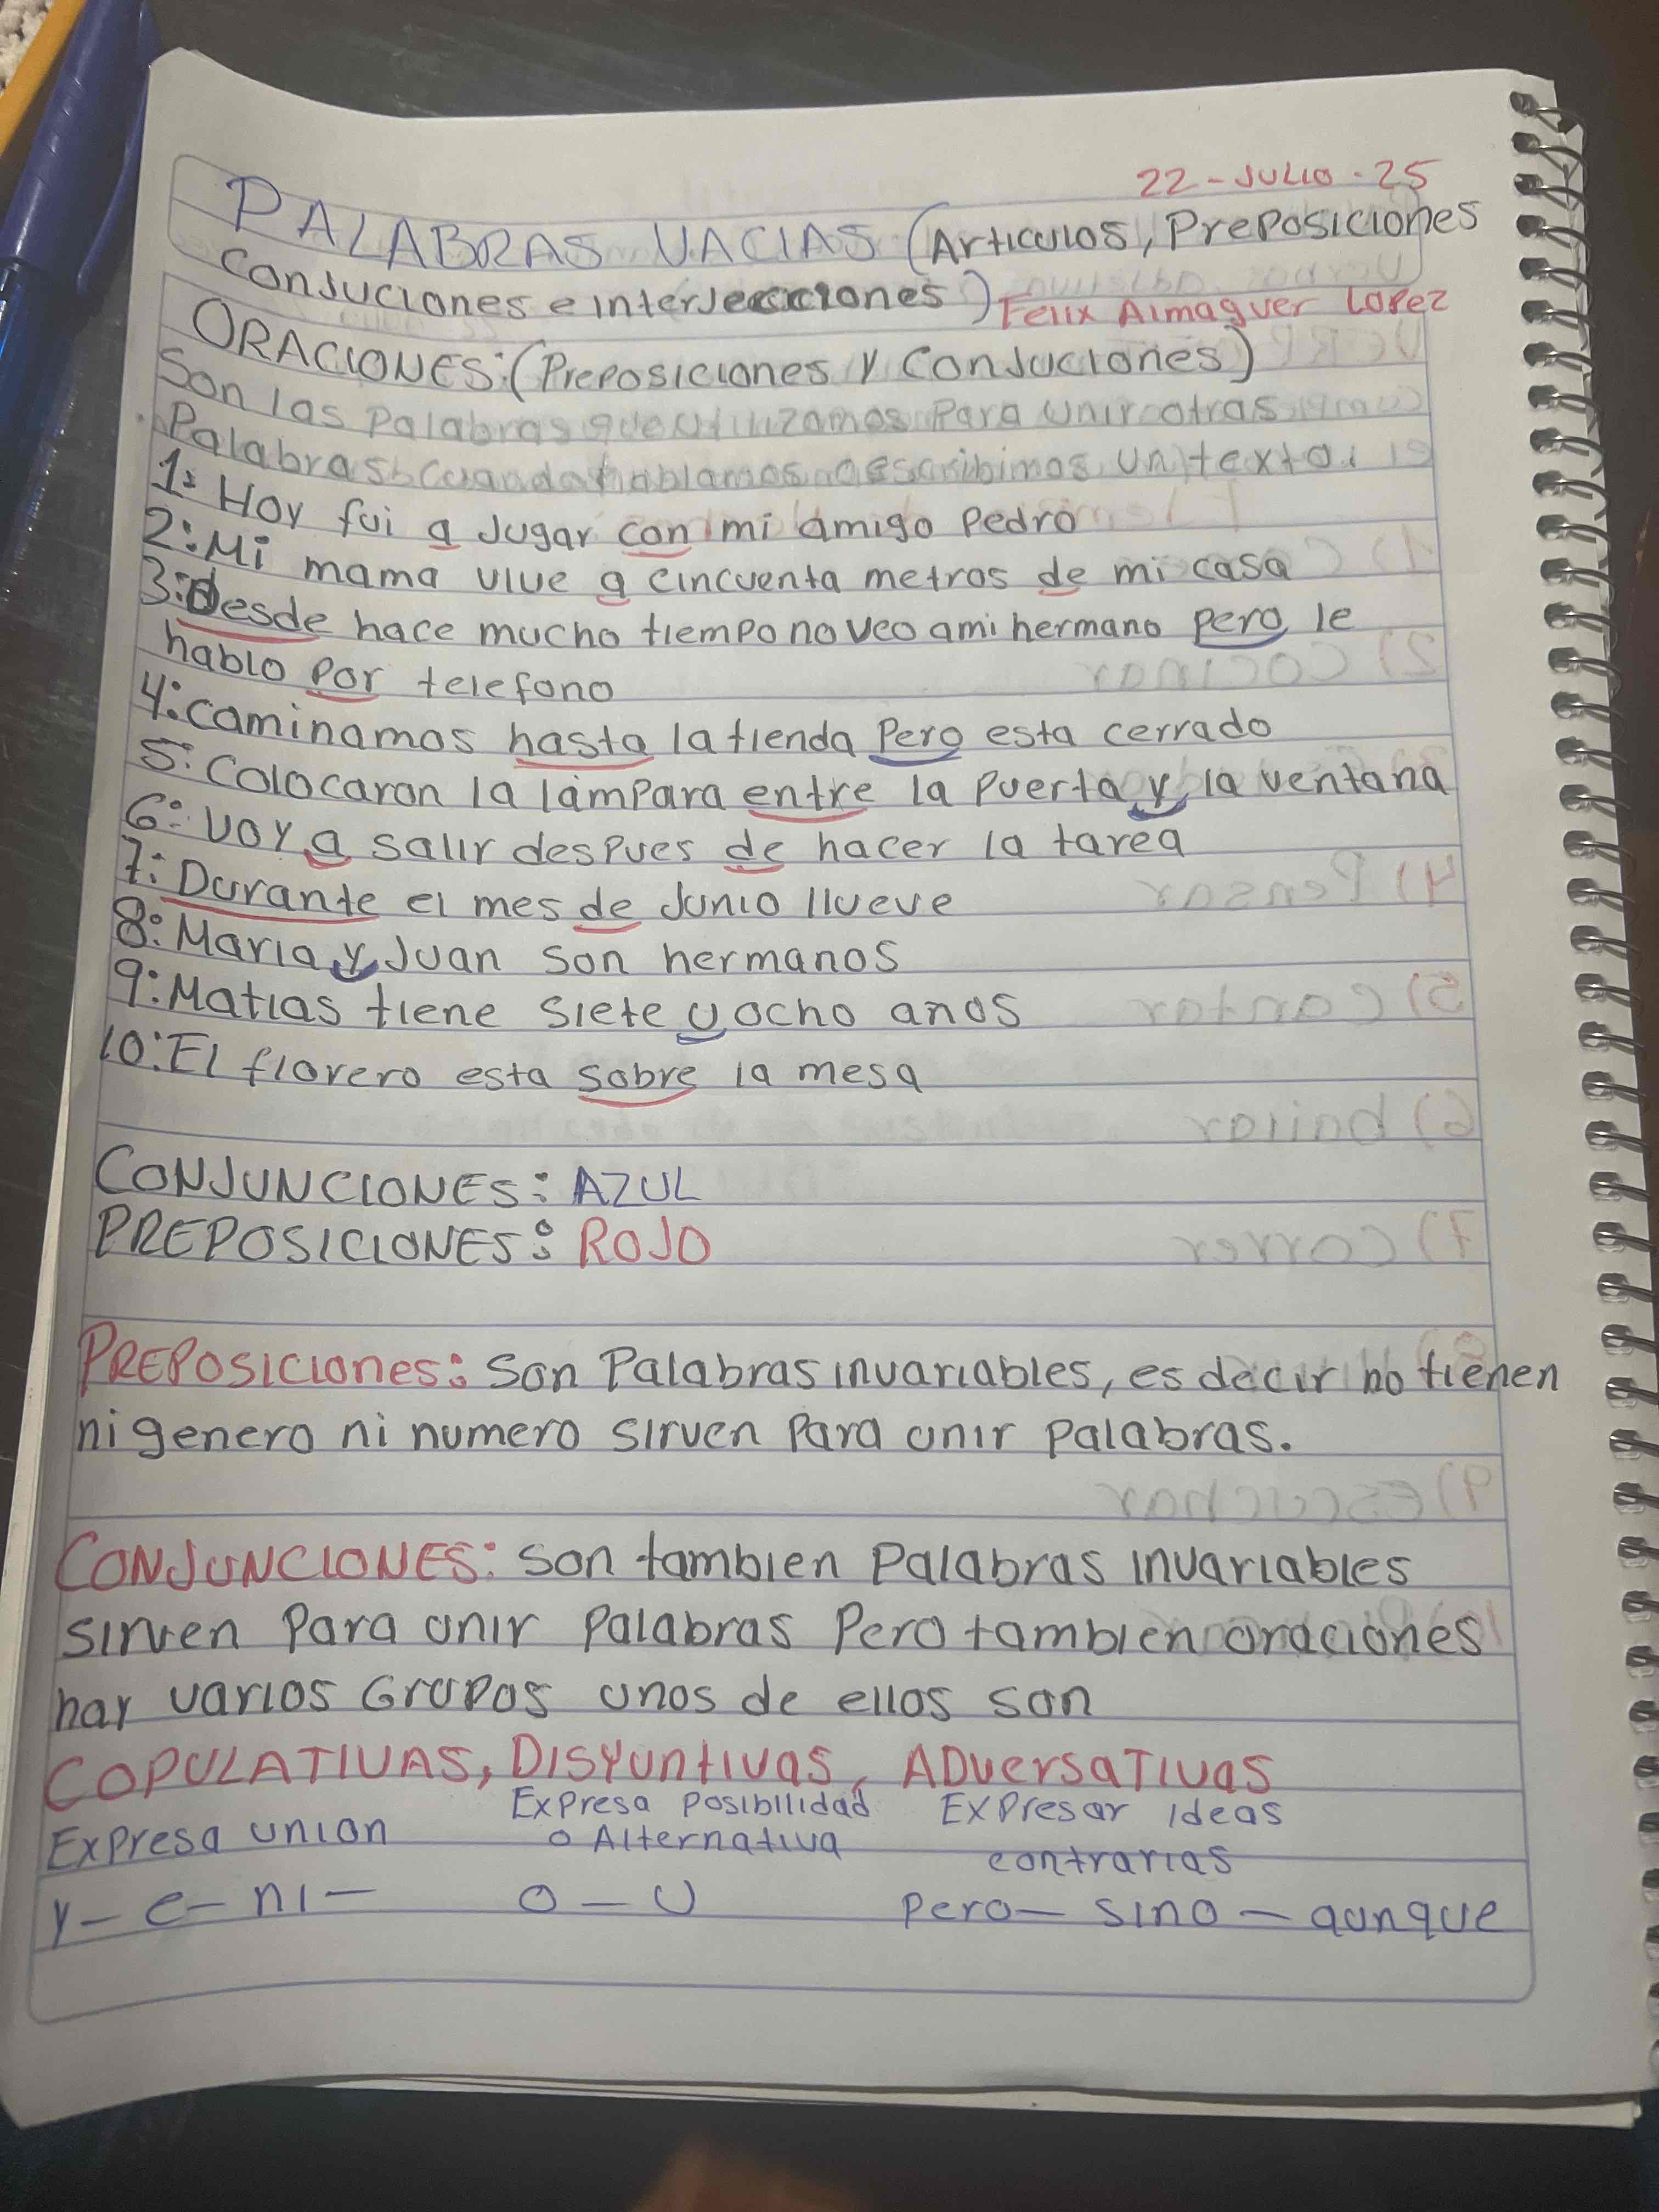 22-JULIO-25
PALABRAS VACIAS (Articulos, Preposiciones
Conjuciones e interjecciones) Felix Almaguer Lopez
ORACIONES: (Preposiciones y Conjuciones)
Son las palabras que utilizamos para unir otras
Palabras cuando hablamos o escribimos un texto.
1: Hoy fui a jugar con mi amigo Pedro
2: Mi mama vive a cincuenta metros de mi casa
3: desde hace mucho tiempo no veo a mi hermano pero le
hablo por telefono
4: caminamos hasta la tienda pero esta cerrado
5: colocaron la lampara entre la puerta y la ventana
6: voy a salir despues de hacer la tarea
7: Durante el mes de Junio llueve
8: Maria y Juan son hermanos
9: Matias tiene siete u ocho anos
10: El florero esta sobre la mesa
CONJUNCIONES: AZUL
PREPOSICIONES: ROJO
PREPOSICIONES: Son Palabras invariables, es decir no tienen
ni genero ni numero sirven para unir palabras.
CONJUNCIONES: son tambien Palabras invariables
sirven para unir palabras pero tambien oraciones
hay varios Grupos unos de ellos son
COPULATIVAS, DISYUNTIVAS, ADVERSATIVAS
Expresa union Expresa posibilidad o Alternativa Expresar ideas contrarias
y - e - ni - o - u pero - sino - aunque